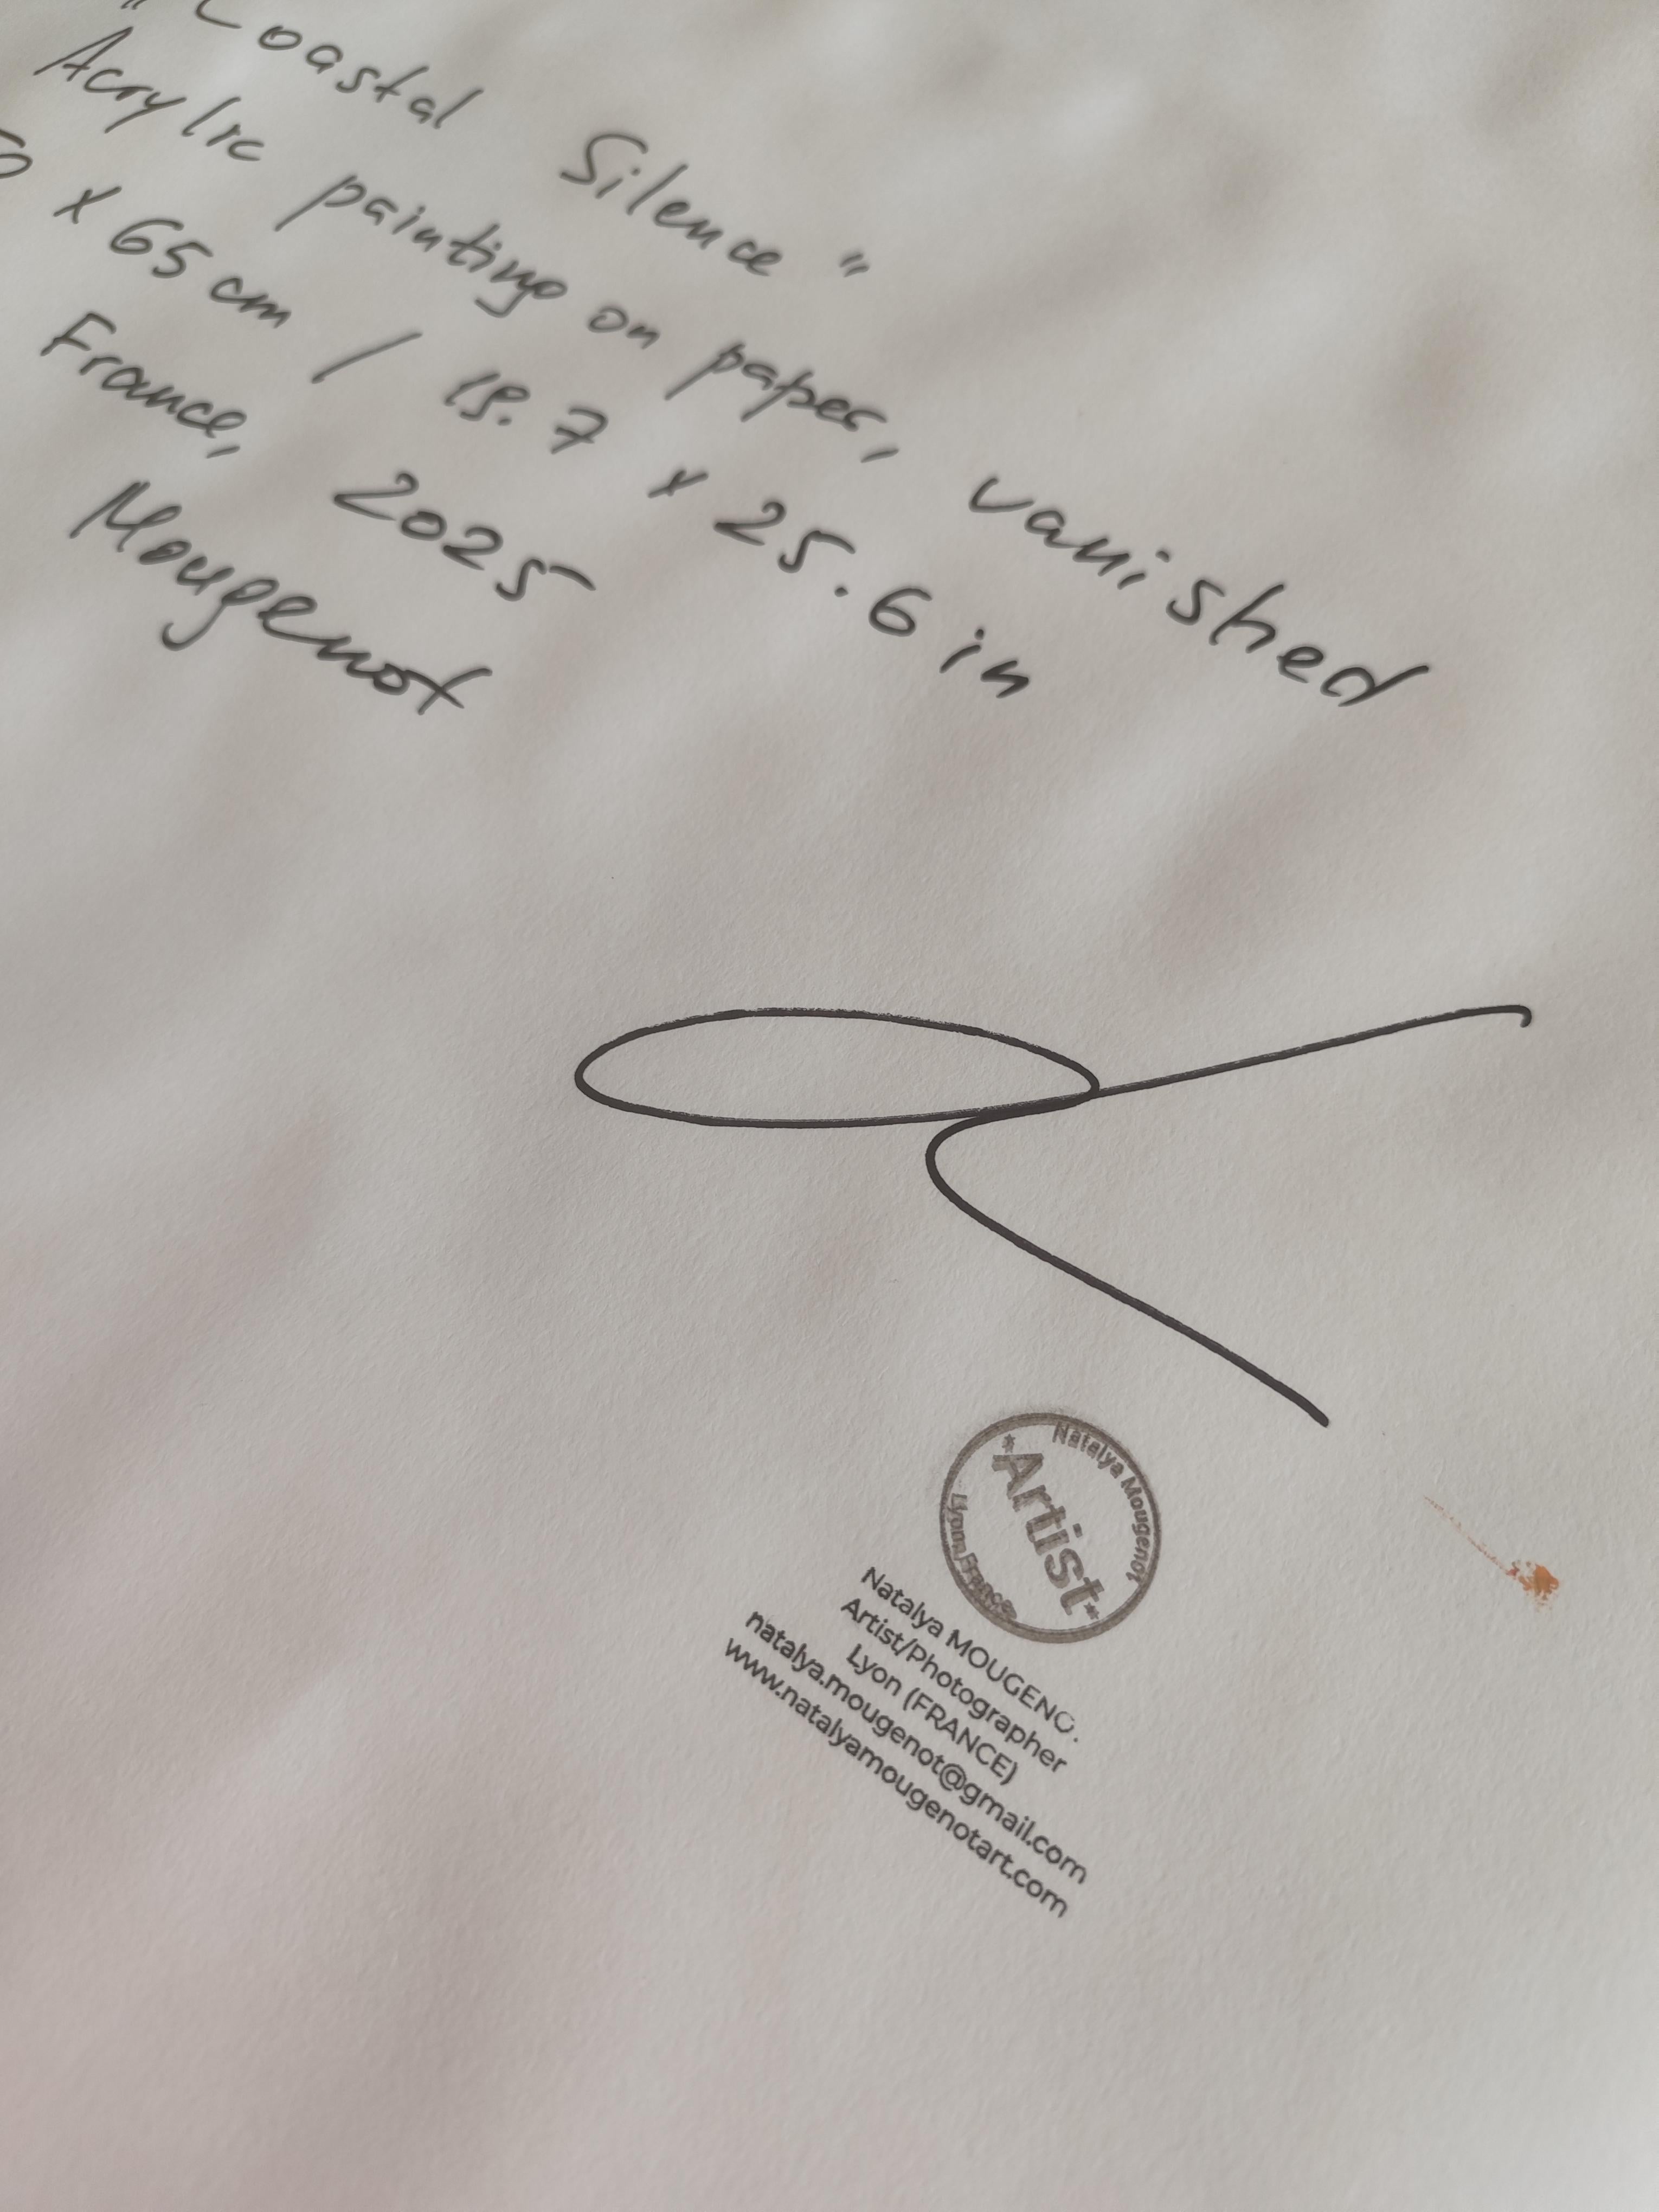 "Coastal Silence"
Acrylic painting on paper, vanished
50 x 65 cm / 19.7 x 25.6 in
France, 2025
Mougenot
Natalya Mougenot
*Artist*
Lyon, France
Natalya MOUGENO.
Artist/Photographer
Lyon (FRANCE)
natalya.mougenot@gmail.com
www.natalyamougenotart.com